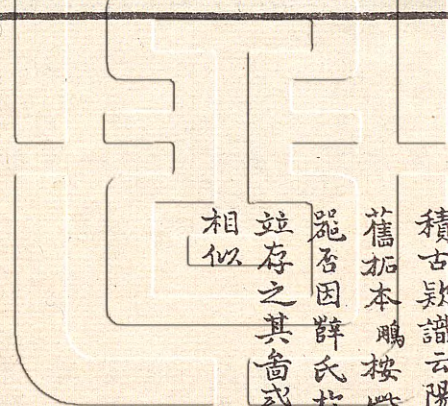 積古欵識云陽
舊拓本鵬按此
器否因薛氏於
竝存之其啚或
相似